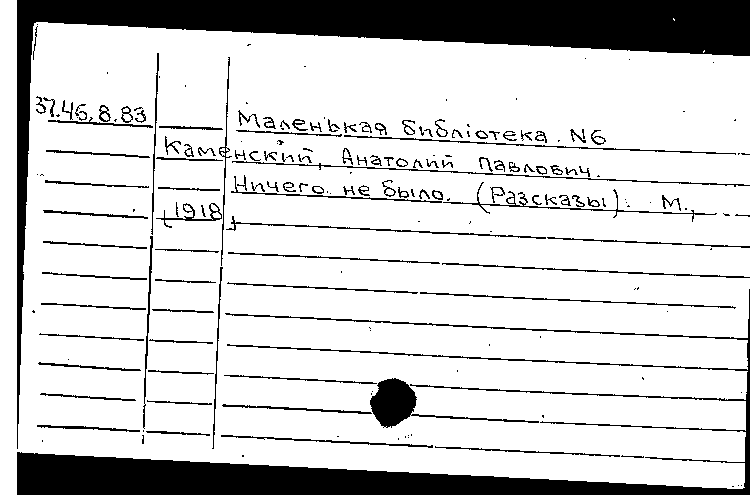 37.46.8.83
Маленькая библіотека. N6
Каменский, Анатолий Павлович.
Ничего не было. (Разсказы). М.,
[1918]